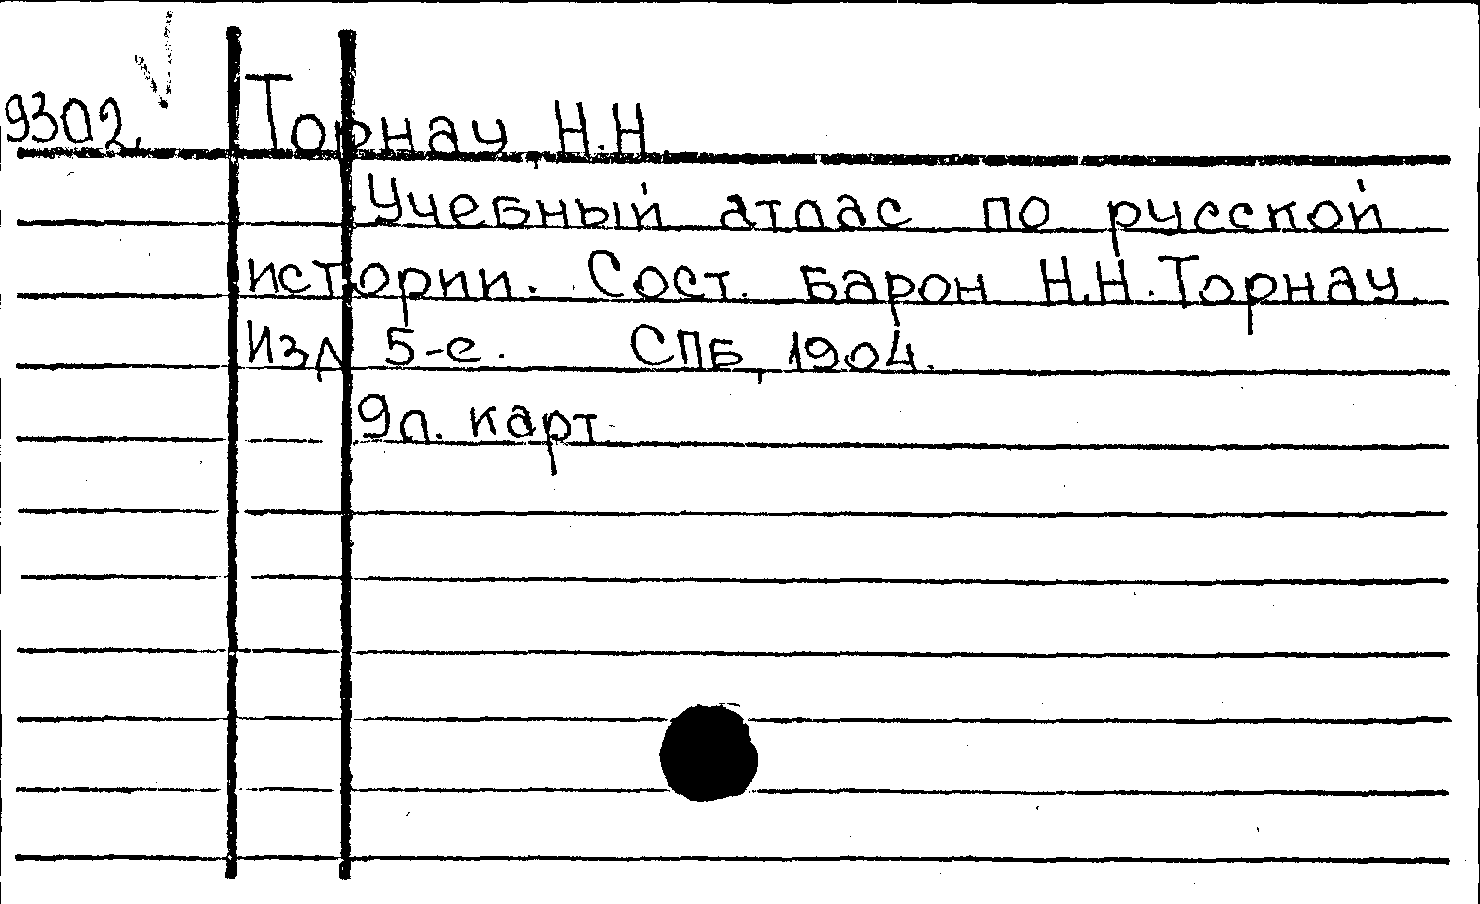 9302. Торнау, Н.Н.
Учебный атлас по русской
истории. Сост. барон Н.Н.Торнау.
Изд 5-е. СПБ, 1904.
9л. карт.